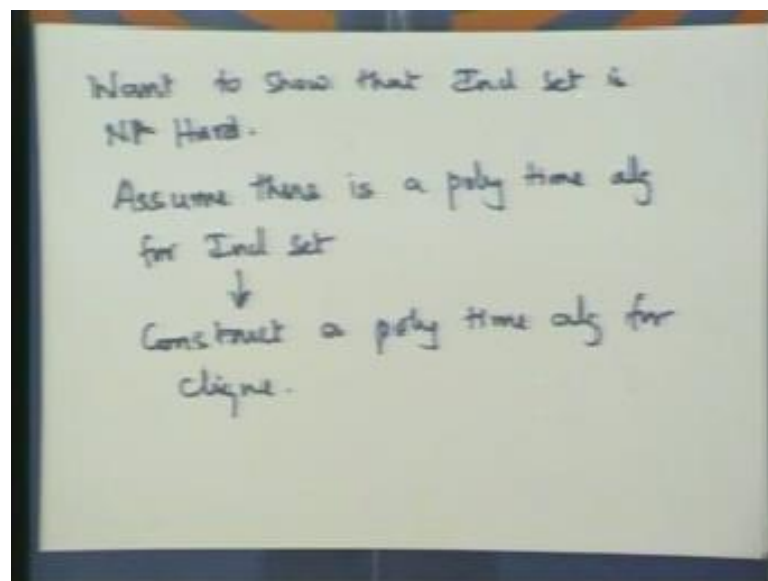 Want to show that Ind set is
NP Hard.
Assume there is a poly time alg
for Ind set
↓
Construct a poly time alg for
clique.